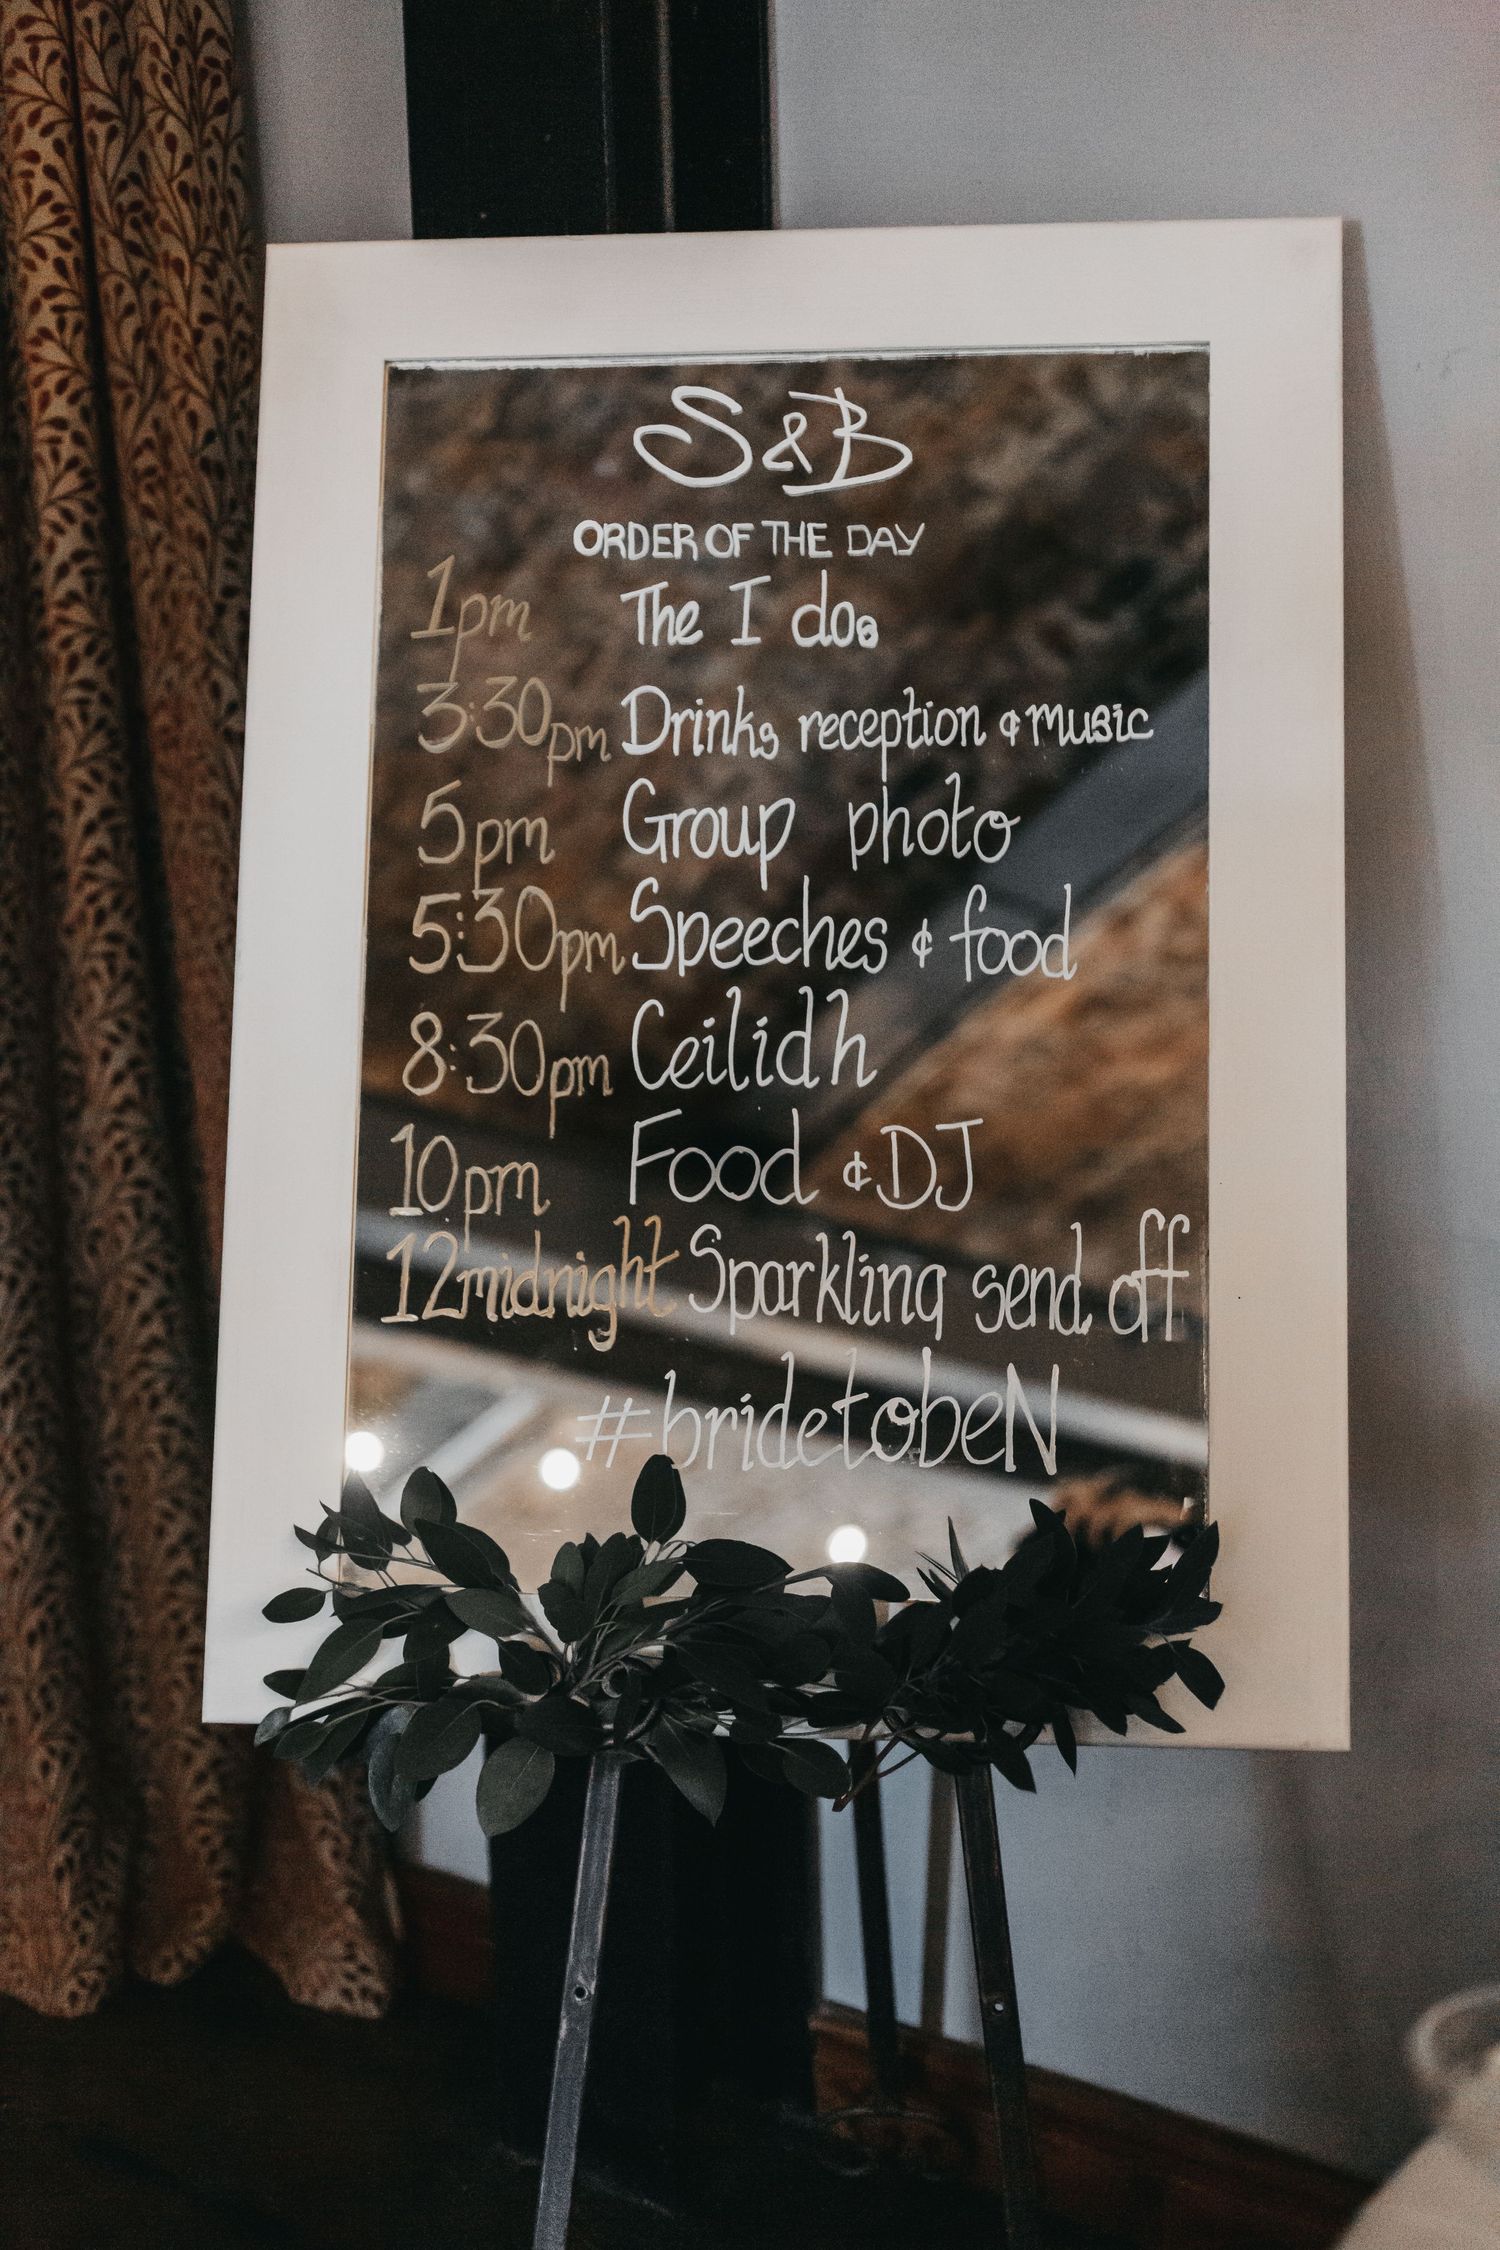 S & B
ORDER OF THE DAY
1pm The I dos
3:30pm Drinks reception & music
5pm Group photo
5:30pm Speeches & food
8:30pm Ceilidh
10pm Food & DJ
12midnight Sparkling send off
#bridetobeN